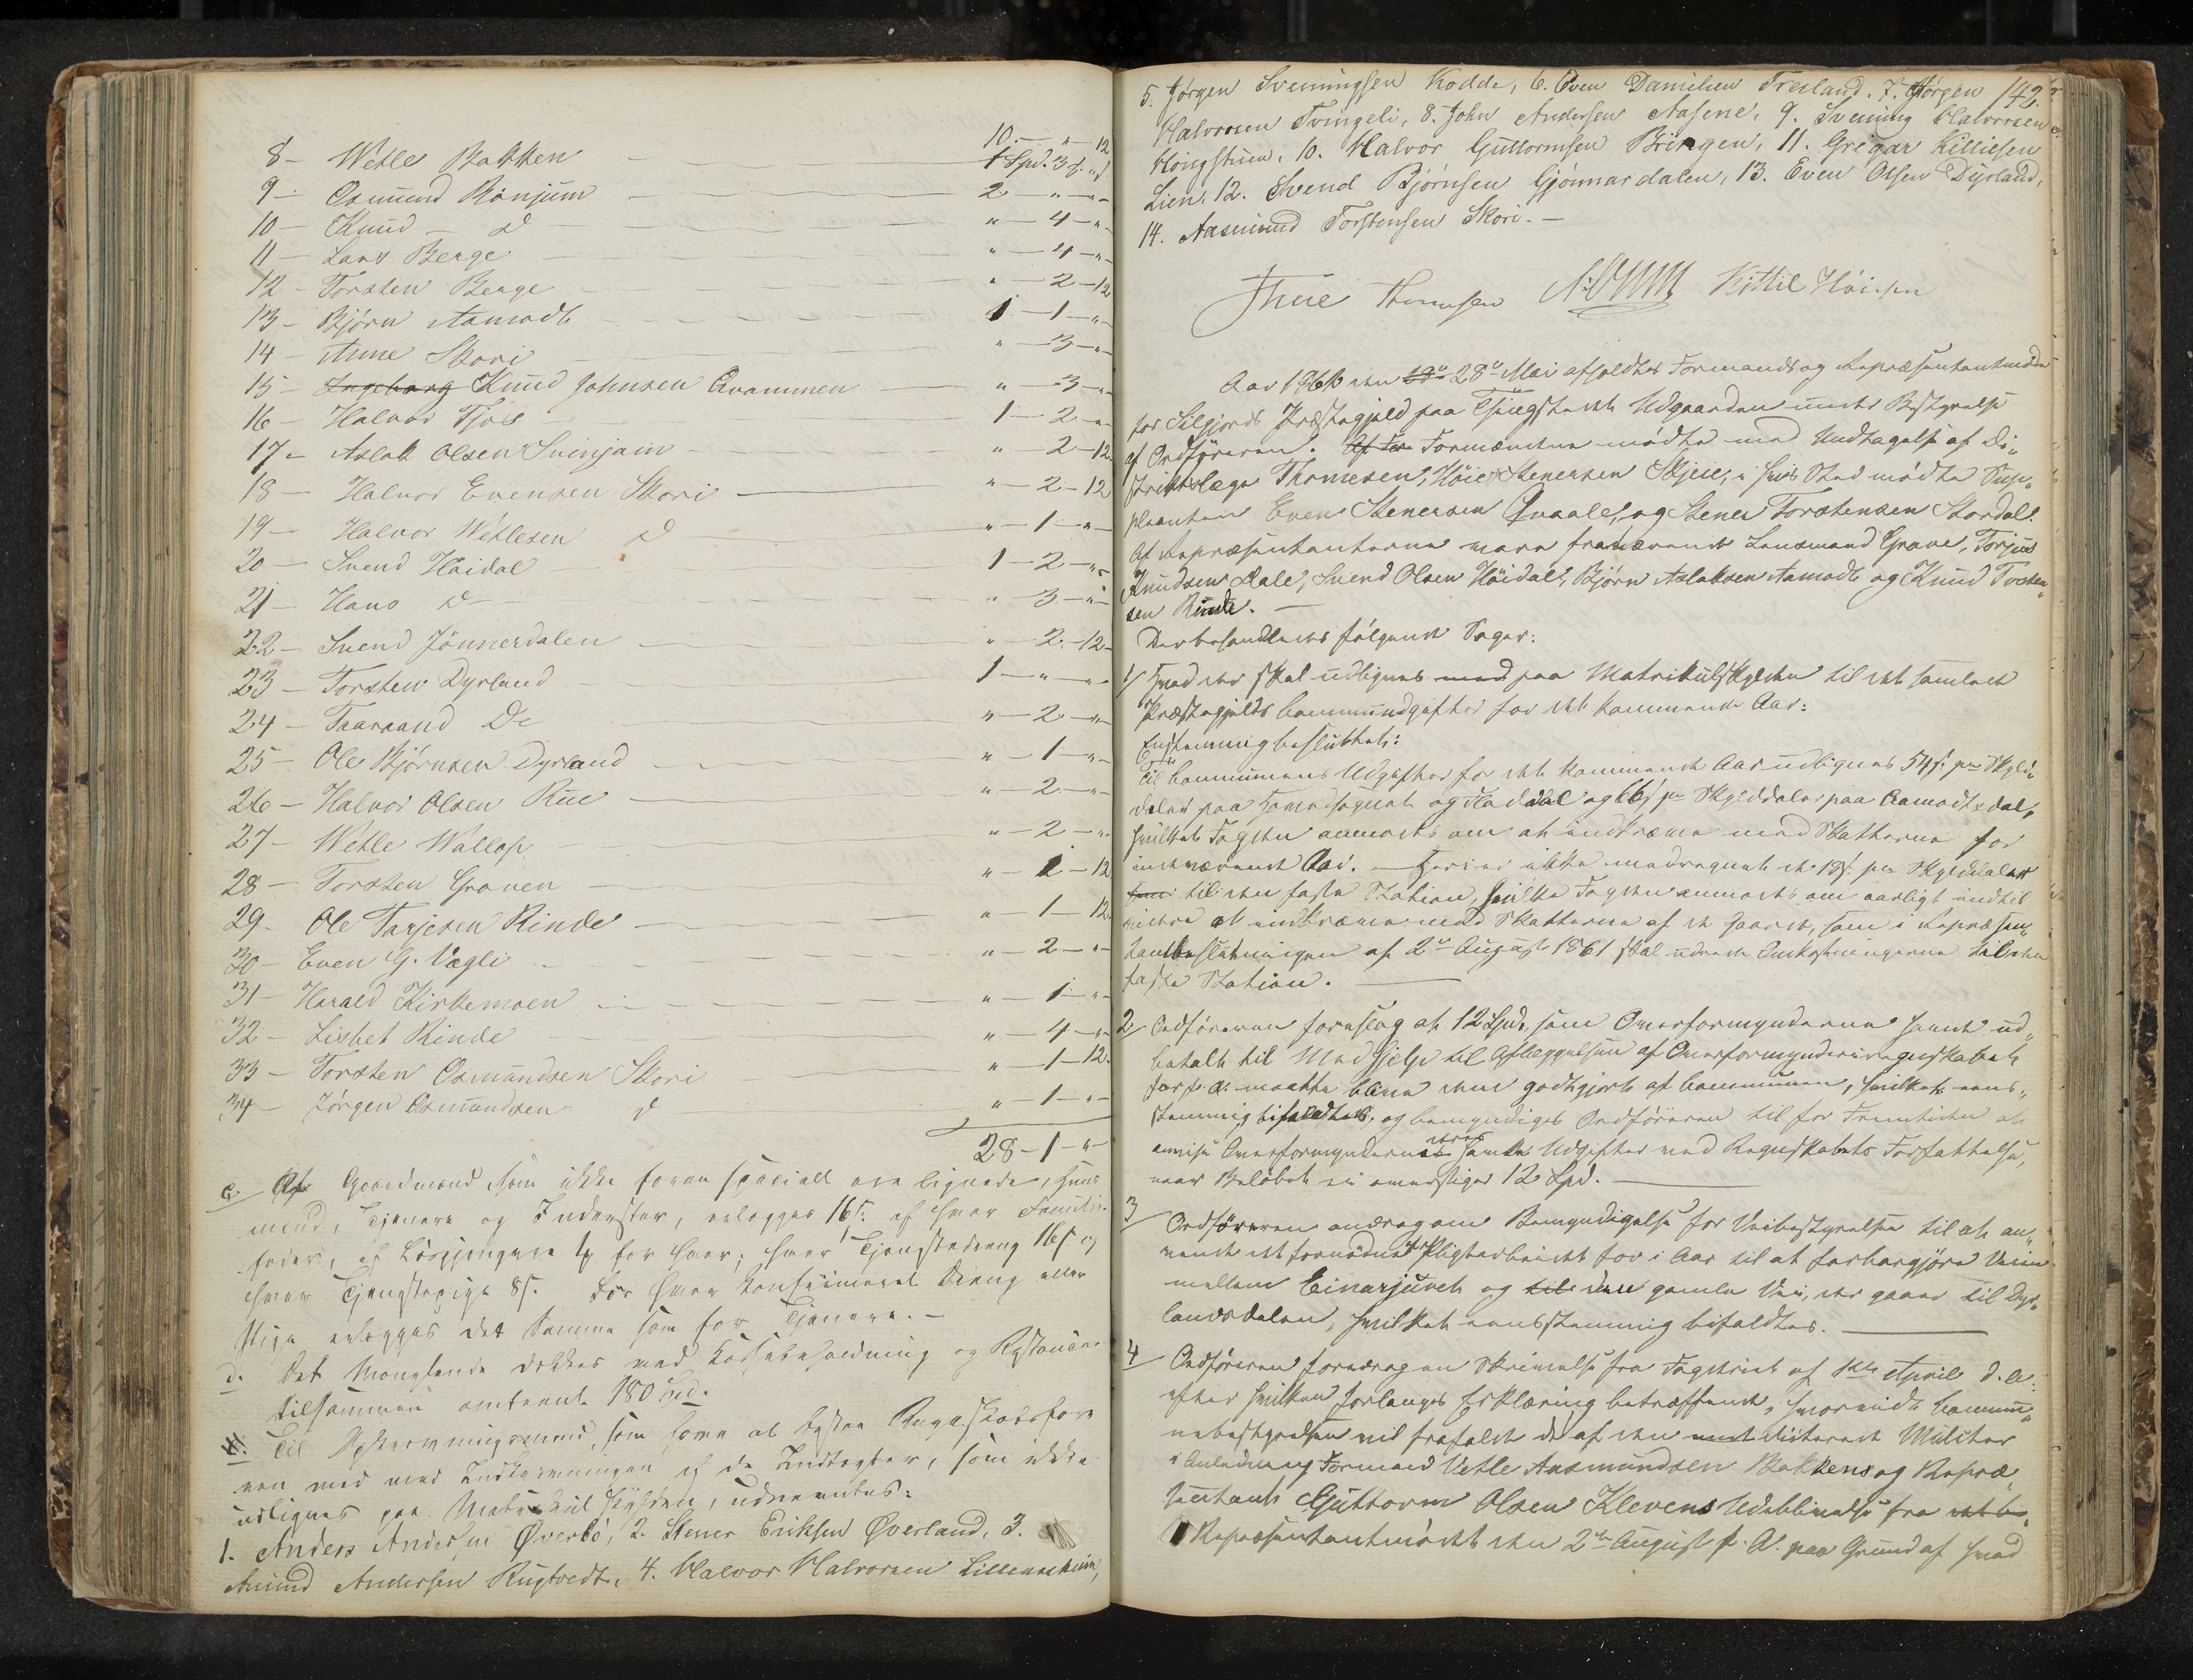 10. - " - 12
8 - Wetle Bakken - 1 Spd. 3 ß. " d.
9 - Osmund Rønjum - 2 - " - " -
10 - Knud - D - " - 4 - " -
11 - Lars Berge - " - 4 - " -
12 - Torsten Berge - " - 2 - 12
13 - Bjørn Aamodt - 1 - 1 - " -
14 - Anne Skori - " - 3 - " -
15 - Ingeborg Knud Johnsen Qvammen - " - 3 - " -
16 - Halvor Tjos - 1 - 2 - " -
17 - Aslak Olsen Svinjam - " - 2 - 12
18 - Halvor Evensen Skori - " - 2 - 12
19 - Halvor Wetlesen D - " - 1 - " -
20 - Svend Høidal - 1 - 2 - " -
21 - Hans D - " - 3 - " -
22 - Svend Jønnerdalen - " - 2 - 12 -
23 - Torsten Dyrland - 1 - " - " -
24 - Taaraand Do - " - 2 - " -
25 - Ole Bjørnsen Dyrland - " - 1 - " -
26 - Halvor Olsen Rue - " - 2 - " -
27 - Wetle Wallop - " - 2 - " -
28 - Torsten Groven - " - 1 - 12
29 - Ole Tarjesen Rinde - " - 1 - 12
30 - Even G. Vægli - " - 2 - " -
31 - Harald Kirkemoen - " - 1 - " -
32 - Lisbet Rinde - " - 4 - " -
33 - Torsten Osmundsen Skori - " - 1 - 12.
34 - Jørgen Osmundsen D - " - 1 - " -
28 - 1 - " -
c. Af Gaardmænd som ikke foran specielt ere lignede, Huus
mænd, Tjenere og Inderster, erlægges 16 ß. af hver Familie
fader, af Løsgjængere for hver; hver Tjenestedreng 16 ß og
hver Tjenestepige 8 ß. For hver konfirmeret Dreng eller
Pige erlægges det Samme som for Tjenere. -
d. Det Manglende dækkes ved Kassebeholdning og Restancer
tilsammen omtrent 180 Spd.
Til Opkrævningsmænd, som have at bistaa Regnskabsføre
ren med med Indkrævningen af de Indtægter, som ikke
udlignes paa Matrikul Skylden, udnævntes:
1. Anders Andersen Øverbø, 2. Stener Eriksen Øverland, 3.
Amund Andersen Rugtvedt, 4. Halvor Halvorsen Lillenschein,
142.
5. Jørgen Sveningsen Kodde, 6. Even Danielsen Tresland, 7. Jørgen
Halvorsen Tvingeli, 8. John Andersen Aasene, 9. Svening Halvorsen
Hougstuen, 10. Halvor Guttormsen Bringen, 11. Gregar Killielsen
Lien, 12. Svend Bjørnsen Gjønnardalen, 13. Even Olsen Dyrland,
14. Aasmund Torstensen Skori. -
Thue Thomsen Kittil Høiesen
Aar 1862 den 28de Mai afholdtes Formands og Repræsentantmøde
for Silgjords Præstegjeld paa Thingstedet Udgaarden under Bestyrelse
af Ordføreren. Af Formændene mødte med Undtagelse af Di-
striktslæge Thomesen, Høie Stenersen Skjeie, i hvis Sted mødte Sup-
pleanten Even Stenersen Qvaale, og Stener Torstensen Stordal.
Af Repræsentanterne vare fraværende Lensmand Grave, Torjus
Knudsen Dale, Svend Olsen Høidal, Bjørn Aslaksen Aamodt og Knud Torsten-
sen Rinde. -
Der behandledes følgende Sager:
1/ Hvad der skal udlignes med paa Matrikulskylden til det samlede
Præstegjelds Communudgifter for det kommende Aar:
Enstemmig besluttet:
Til Communens Udgifter for det kommende Aar udlignes 54 ß pr. Skyld-
daler paa Hovedsognet og Fladdal og 66 ß pr Skylddaler paa Aamodtsdal,
hvilket Fogden anmodes om at indkræve med Skatterne for
indeværende Aar. - Heri er ikke medregnet de 13 ß. pr Skylddaler
til den faste Station, hvilke Fogden anmodes om aarligt indtil
videre at indkræve med Skatterne af de Gaarde, som i Repræsen-
tantbeslutningen af 2den August 1861 skal udrede Omkostningerne til den
faste Station.
2 Ordføreren foreslog at 12 Spd., som Overformynderne havde ud-
betalt til Medhjelp til Aflæggelsen af Overformynderiregnskabet
for f. A. maatte blive dem godtgjort af Communen, hvilket eens-
stemmig bifaldtes, og bemyndiges Ordføreren til for Fremtiden at
anvise Overformynderne deres havte Udgifter ved Regnskabets Forfattelse,
naar Beløbet ei overstiger 12 Spd.
3 Ordføreren androg om Bemyndigelse for Veibestyrelsen til at an-
vende det fornødne Pligtarbeide for i Aar til at farbargjøre Veien
mellem Einarjuvet og til den gamle Vei, der gaaer til Dyr-
landsdalen, hvilket eensstemmig bifaldtes.
4 Ordføreren foredrog en Skrivelse fra Fogderiet af 1ste April d. A.
efter hvilken forlanges Erklæring betræffende, hvorvidt Commu-
nebestyrelsen vil frafalde de af den dikterede Mulcter
i Anledning Formand Vetle Aasmundsen Bakkens og Repræ-
sentant Guttorm Olsen Klevens Udeblivelse fra
Repræsentantmødet den 2den August f. A. paa Grund af hvad